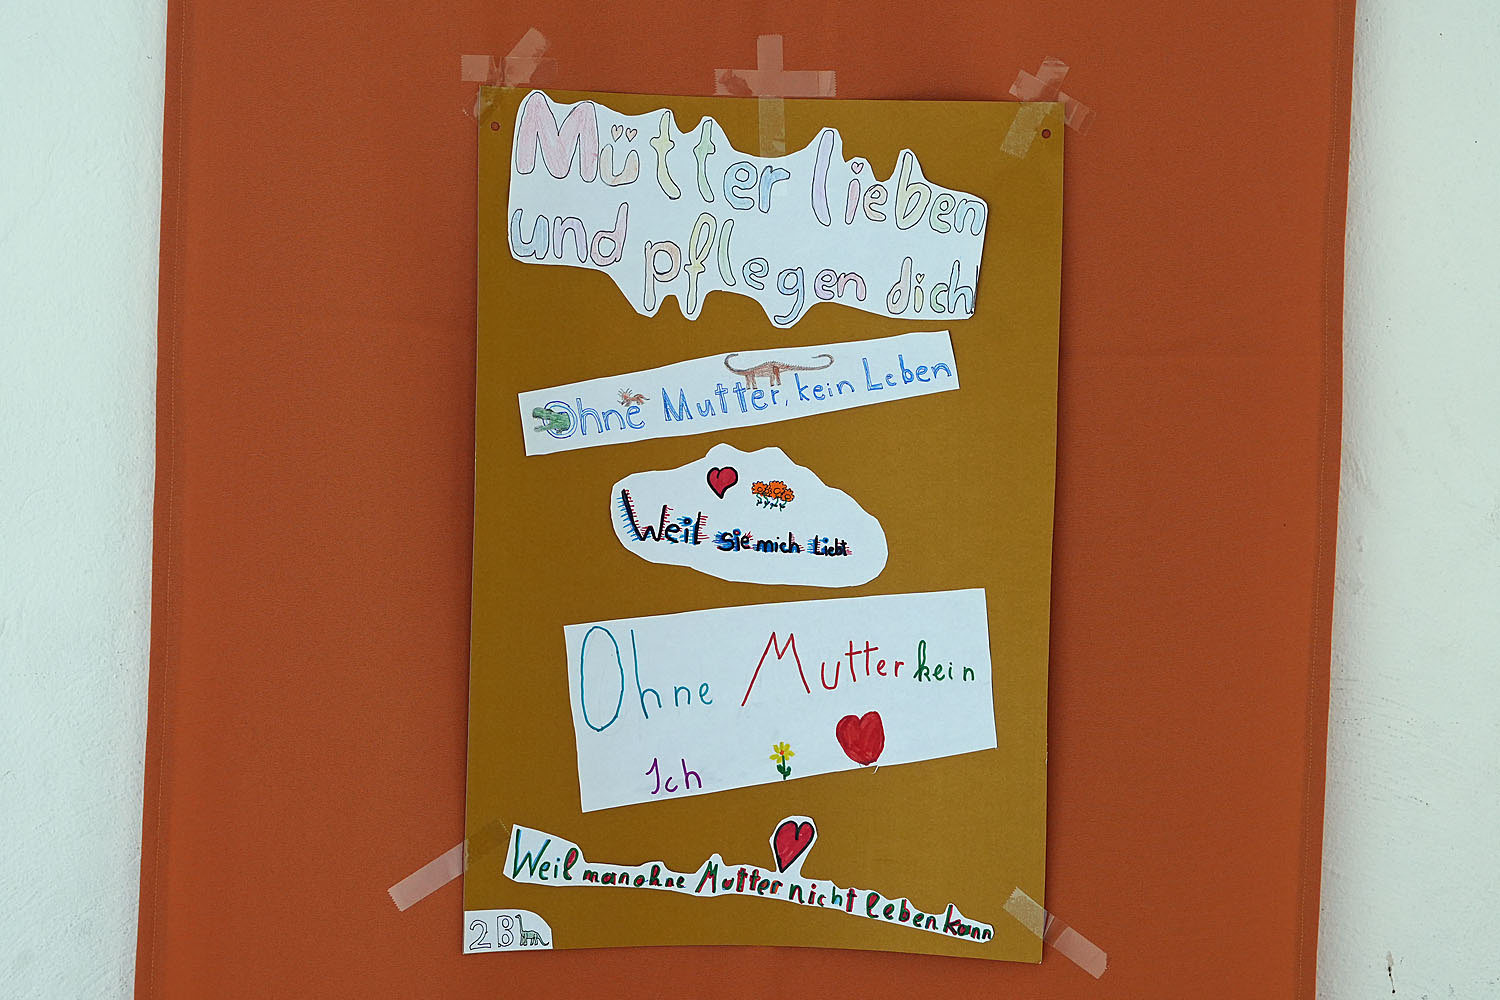 Mütter lieben
und pflegen dich
Ohne Mutter, kein Leben
Weil sie mich liebt
Ohne Mutter kein
Ich
Weil man ohne Mutter nicht leben kann
2B